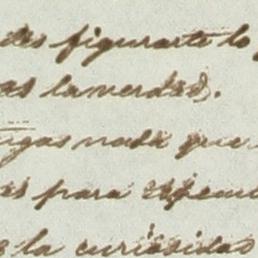 des figurarte lo
as lamerdad.
igas nada que
as para
la curiosidad